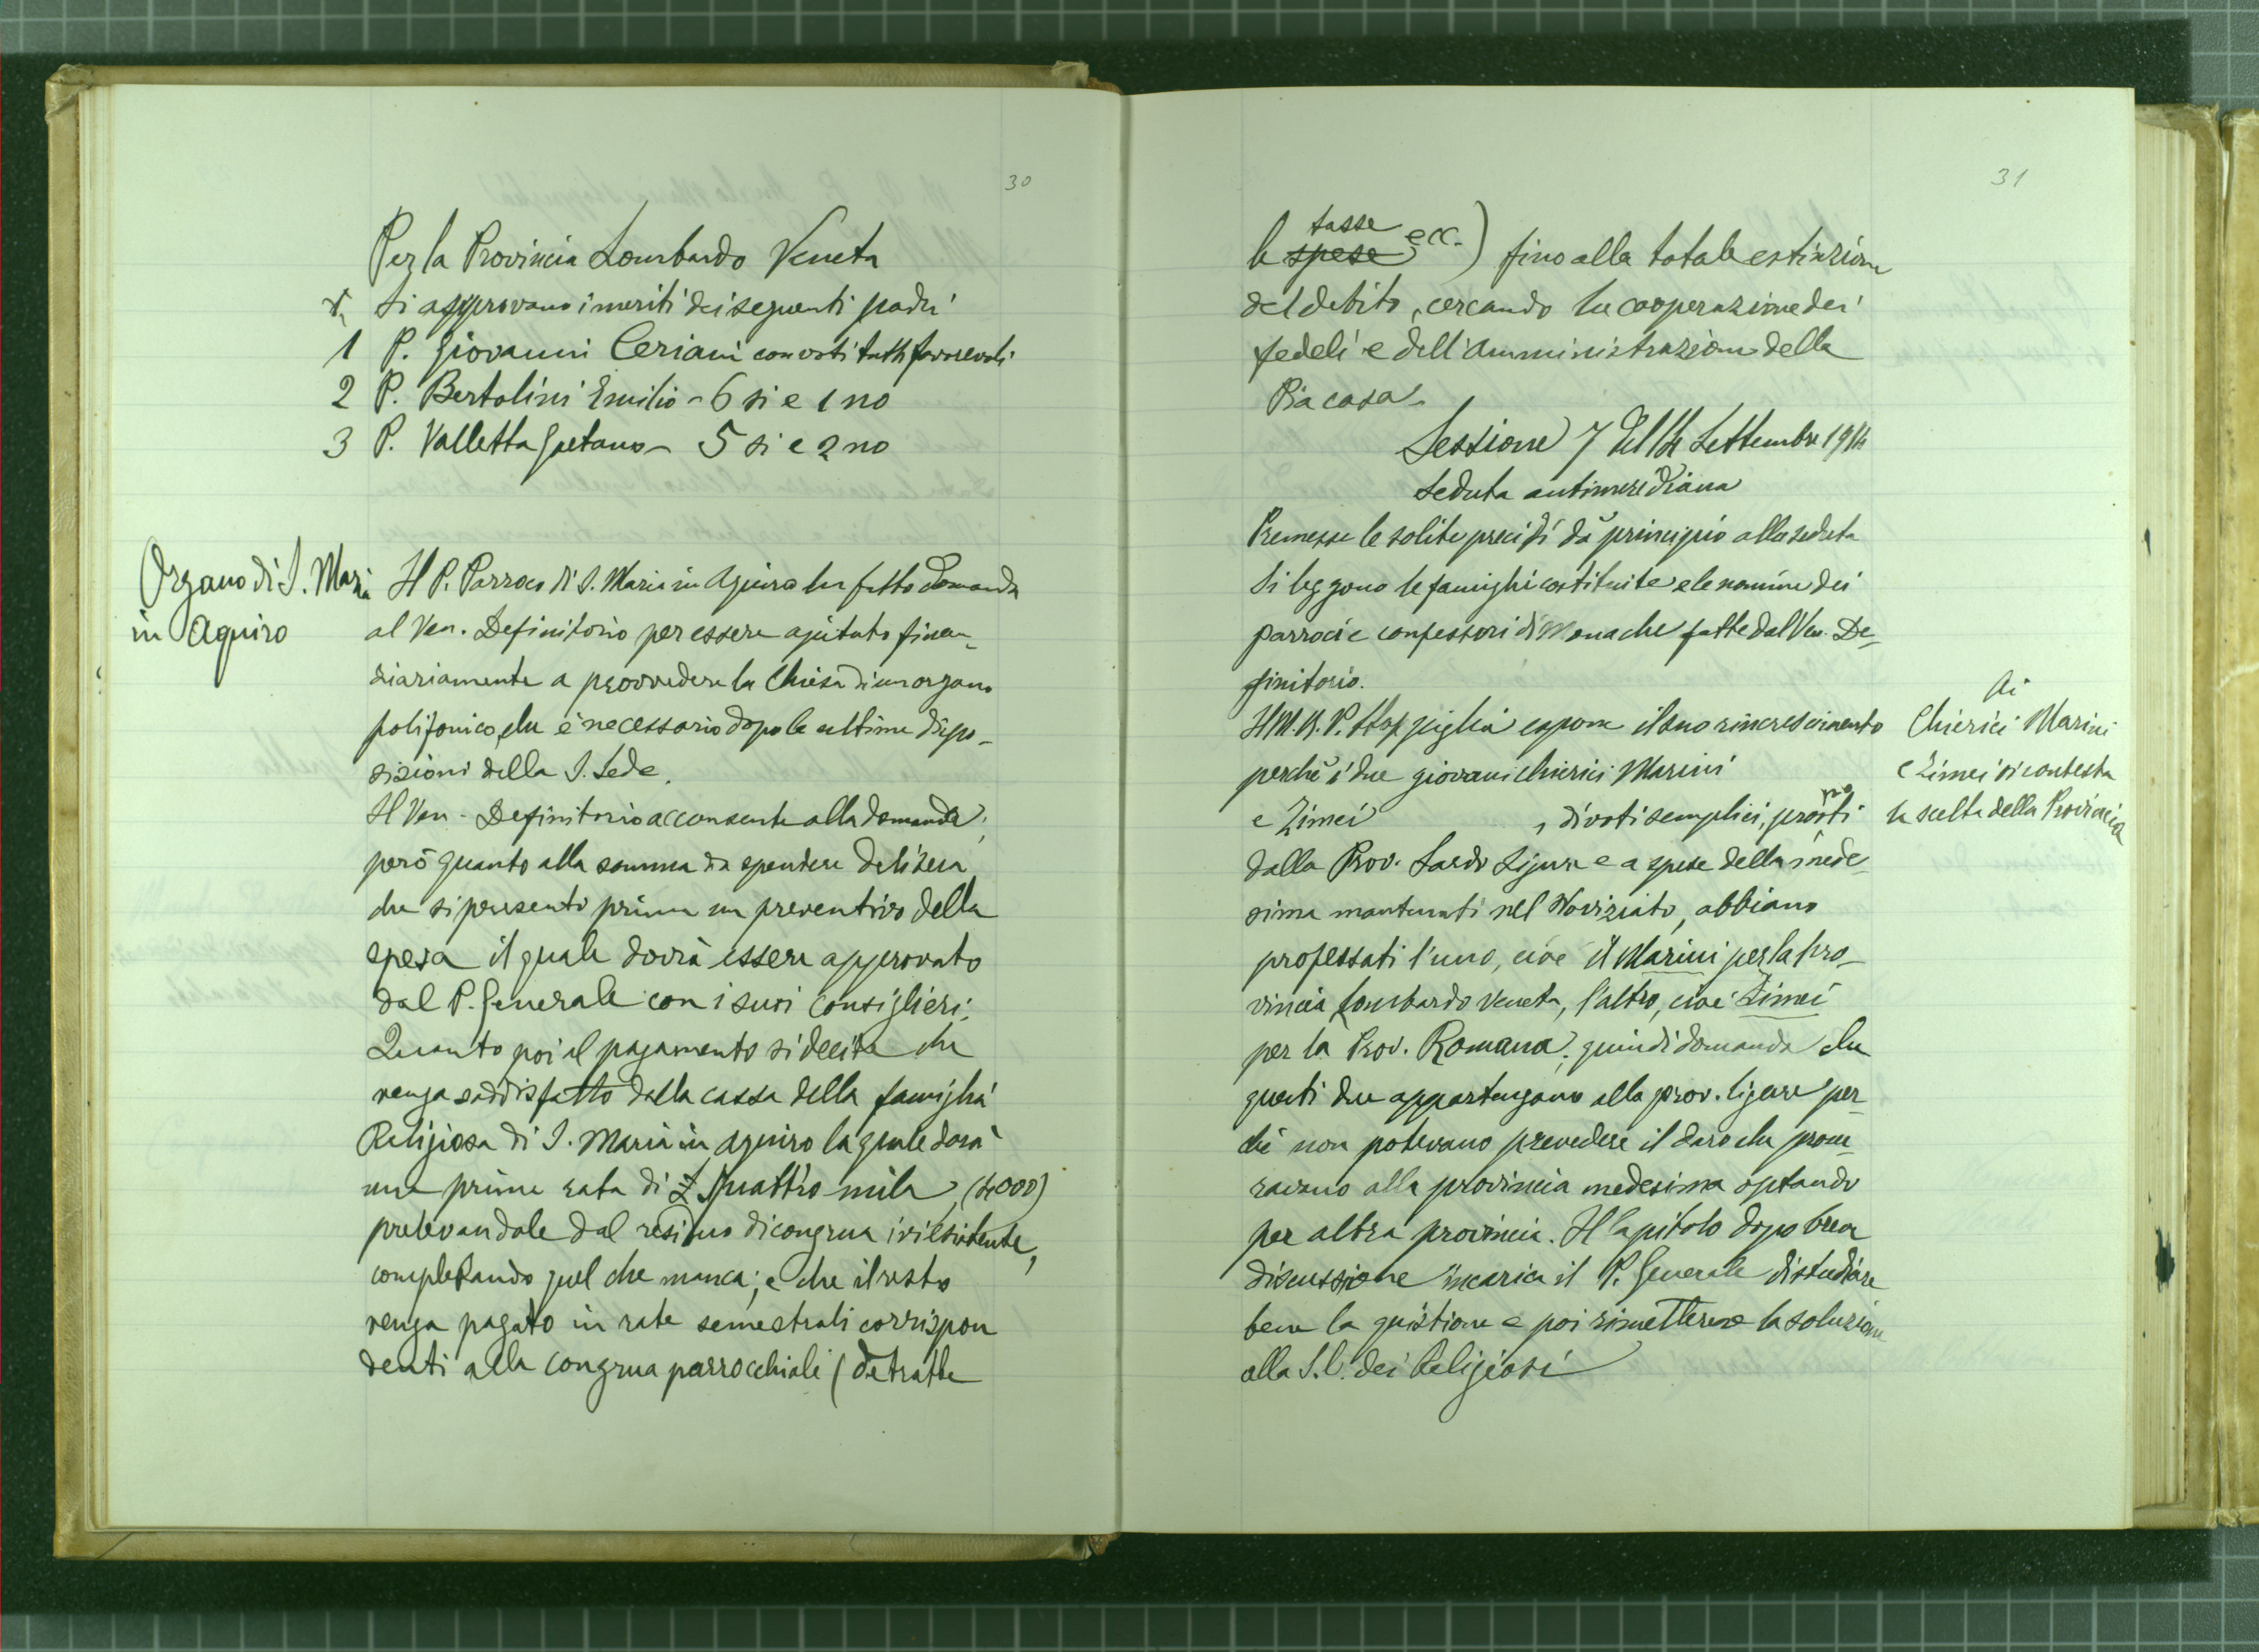 30
Per la Provincia Lombardo Veneta
Si approvano i meriti dei seguenti padri
1 P. Giovanni Ceriani con voti tutti favorevoli
2 P. Bertolini Emilio - 6 si e 1 no
3 P. Valletta Gaetano - 5 si e 2 no
Organo di S. Maria
in Aquiro
Il P. Parroco di S. Maria in Aquiro ha fatto domanda
al Ven. Definitorio per essere ajutato finan-
ziariamente a provvedere la Chiesa di un organo
polifonico, che è necessario dopo le ultime dispo-
sizioni della S. Sede.
Il Ven. Definitorio acconsente alla domanda;
però quanto alla somma da spendere delibera
che si presenti prima un preventivo della
spesa il quale dovrà essere approvato
dal P. Generale con i suoi Consiglieri.
Quanto poi al pagamento si decide che
venga soddisfatto dalla cassa della famiglia
Religiosa di S. Maria in Aquiro la quale darà
una prima rata di £ Quattro mila (4000)
prelevandole dal residuo di congrua ivi esistente,
completando quel che manca; e che il resto
venga pagato in rate semestrali corrispon
denti alla congrua parrocchiale (detratte
31
le spese tasse ecc.) fino alla totale estinzione
del debito, cercando la cooperazione dei
fedeli e dell'Amministrazione della
Pia casa.
Sessione 7 del 14 Settembre 1914
Seduta antimeridiana
Premesse le solite preci si dà principio alla seduta
Si leggono le famiglie costituite e le nomine dei
parroci e confessori di Monache fatte dal Ven. De-
finitorio.
Il M. R. P. Stoppiglia espone il suo rincrescimento
perchè i due giovani chierici Marini
e Zimei , di voti semplici, prov.ti
dalla Prov. Sardo Ligure e a spese della mede-
sima mantenuti nel Noviziato, abbiano
professati l'uno, cioè il Marini per la Pro-
vincia Lombardo Veneta, l'altro, cioè Zimei
per la Prov. Romana; quindi domanda che
questi due appartengano alla prov. ligure per-
chè non potevano prevedere il danno che procu-
ravano alla provincia medesima optando
per altra provincia. Il Capitolo dopo breve
discussione incarica il P. Generale di studiare
bene la quistione e poi rimetterne la soluzione
alla S. C. dei Religiosi
Ai
Chierici Marini
e Zimei si contesta
la scelta della Provincia